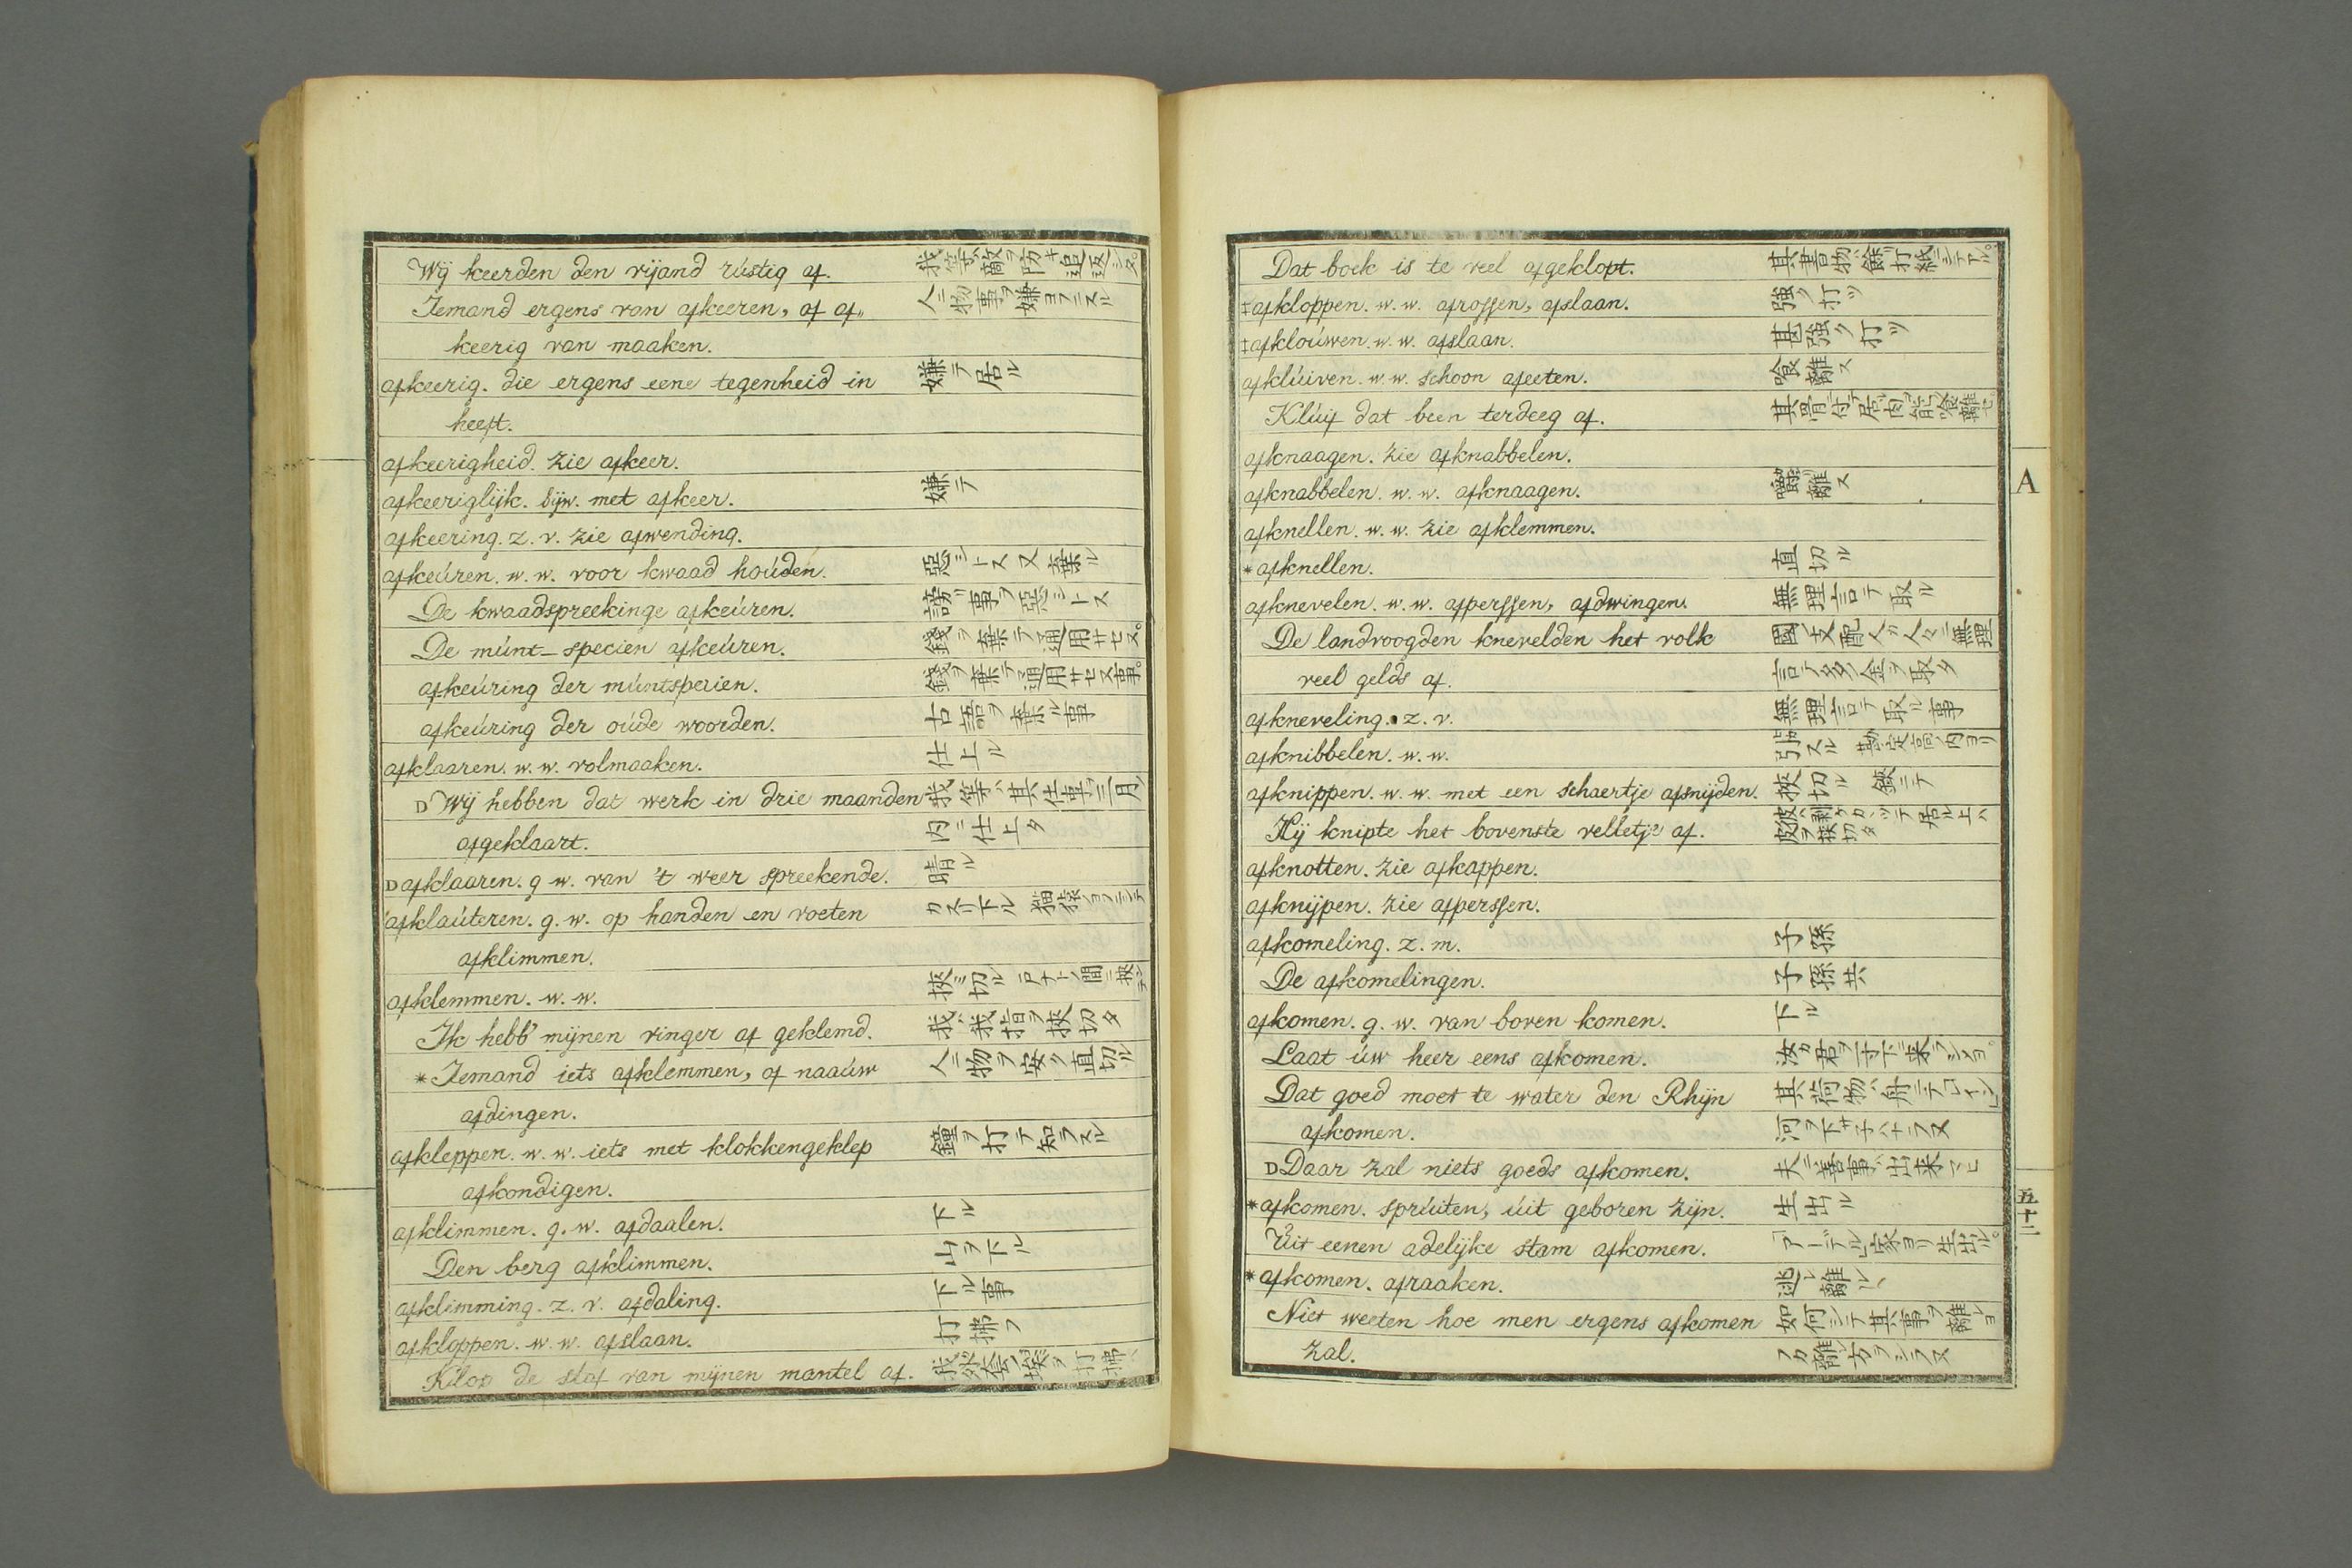 Wij keerden den vijand rústig af. 我等敵ヲ防キ追返シタ。
Iemand ergens van afkeeren, of af„ 人ニ物事ヲ嫌ヨフニスル
keerig van maaken.
afkeerig. die ergens eene tegenheid in 嫌テ居ル
heeft.
afkeerigheid. zie afkeer.
afkeeriglijk. bijw. met afkeer. 嫌テ
afkeering. z. v. zie afwending.
afkeúren. w. w. voor kwaad hoúden. 惡シトス又棄ル
De kwaadspreekinge afkeúren. 謗事ヲ惡シトス
De múnt-specien afkeúren. 錢ヲ棄テ通用サセヌ。
afkeúring der múntspecien. 錢ヲ棄テ通用サセヌ事。
afkeúring der oúde woorden. 古語ヲ棄ル事
afklaaren. w. w. volmaaken. 仕上ル
D Wij hebben dat werk in drie maanden 我等ハ其仕事ヲ三月ノ
afgeklaart. 内ニ仕上タ
D afklaaren. g. w. van 't weer spreekende. 晴ル
afklaúteren. g. w. op handen en voeten 下ル 猫猿
afklimmen.
afklemmen. w. w. 挾ミ切ル
Ik hebb' mijnen vinger af geklemd. 我ハ我指ヲ挾切タ
* Iemand iets afklemmen, of naaúw 人ニ物ヲ安ク直切ル
afdingen.
afkleppen. w. w. iets met klokkengeklep 鐘ヲ打テ知ラスル
afkondigen.
afklimmen. g. w. afdaalen. 下ル
Den berg afklimmen. 山ヲ下ル
afklimming. z. v. afdaling. 下ル事
afkloppen. w. w. afslaan. 打拂フ
Klop de stof van mijnen mantel af. 我 ヲ打拂ヘ
Dat boek is te veel afgeklopt. 其書物ハ餘リ打紙シテアル。
‡ afkloppen. w. w. afrossen, afslaan. 強ク打ツ
‡ afkloúwen. w. w. afslaan. 甚強ク打ツ
afklúiven. w. w. schoon afeeten. 喰離ス
Klúif dat been terdeeg af. 其骨ニ付テ居ル肉ヲ能ク喰離セ
afknaagen. zie afknabbelen.
afknabbelen. w. w. afknaagen. 離ス
afknellen. w. w. zie afklemmen.
* afknellen. 直切ル
afknevelen. w. w. afperssen, afdwingen. 無理言テ取ル
De landvoogden knevelden het volk 國ノ支配人ガ人々ニ無理
veel gelds af. 言テ多ク金ヲ取タ
afkneveling. z. v. 無理言テ取ル事
afknibbelen. w. w. 引スル 勘定高ノ内ヨリ
afknippen. w. w. met een schaertje afsnijden. 挾切ル 鋏ニテ
Hij knipte het bovenste velletje af. 彼ハ剥ケカヽツテ居ル上ハ皮ヲ挾切タ
afknotten. zie afkappen.
afknijpen. zie afperssen.
afkomeling. z. m. 子孫
De afkomelingen. 子孫共
afkomen. g. w. van boven komen. 下ル
Laat úw heer eens afkomen. 汝カ君ヲ一寸下ニ来ラシメヨ。
Dat goed moet te water den Rhijn 其荷物ハ舟ニテ
afkomen. 河ヲ下サ子ハナラヌ
D Daar zal niets goeds afkomen. 夫ニ善事ハ出来マヒ
* afkomen. sprúiten, úit geboren zijn. 生出ル
Úit eenen adelijke stam afkomen. 「アーデル」家ヨリ生出ル。
* afkomen. afraaken. 逃レ離ルヽ
Niet weeten hoe men ergens afkomen 如何シテ其事ヲ離レヨ
zal. フカ離レ方ヲシラヌ
A
五十二